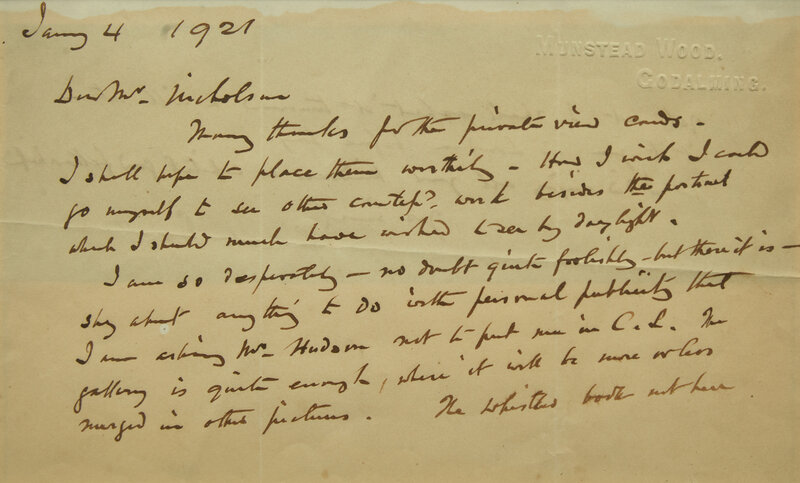 Jany 4 1921
MUNSTEAD WOOD,
GODALMING.
Dear Mr. Nicholson
Many thanks for the private view cards.
I shall hope to place them worthily - How I wish I could
go myself to see other work besides the portrait
which I should much have wished to see by daylight.
I am so desperately - no doubt quite foolishly - but there it is -
shy about anything to do with personal publicity that
I am asking Mr. Hudson not to put me in C. L. The
gallery is quite enough, where it will be more or less
merged in other pictures. The Whistler book not here